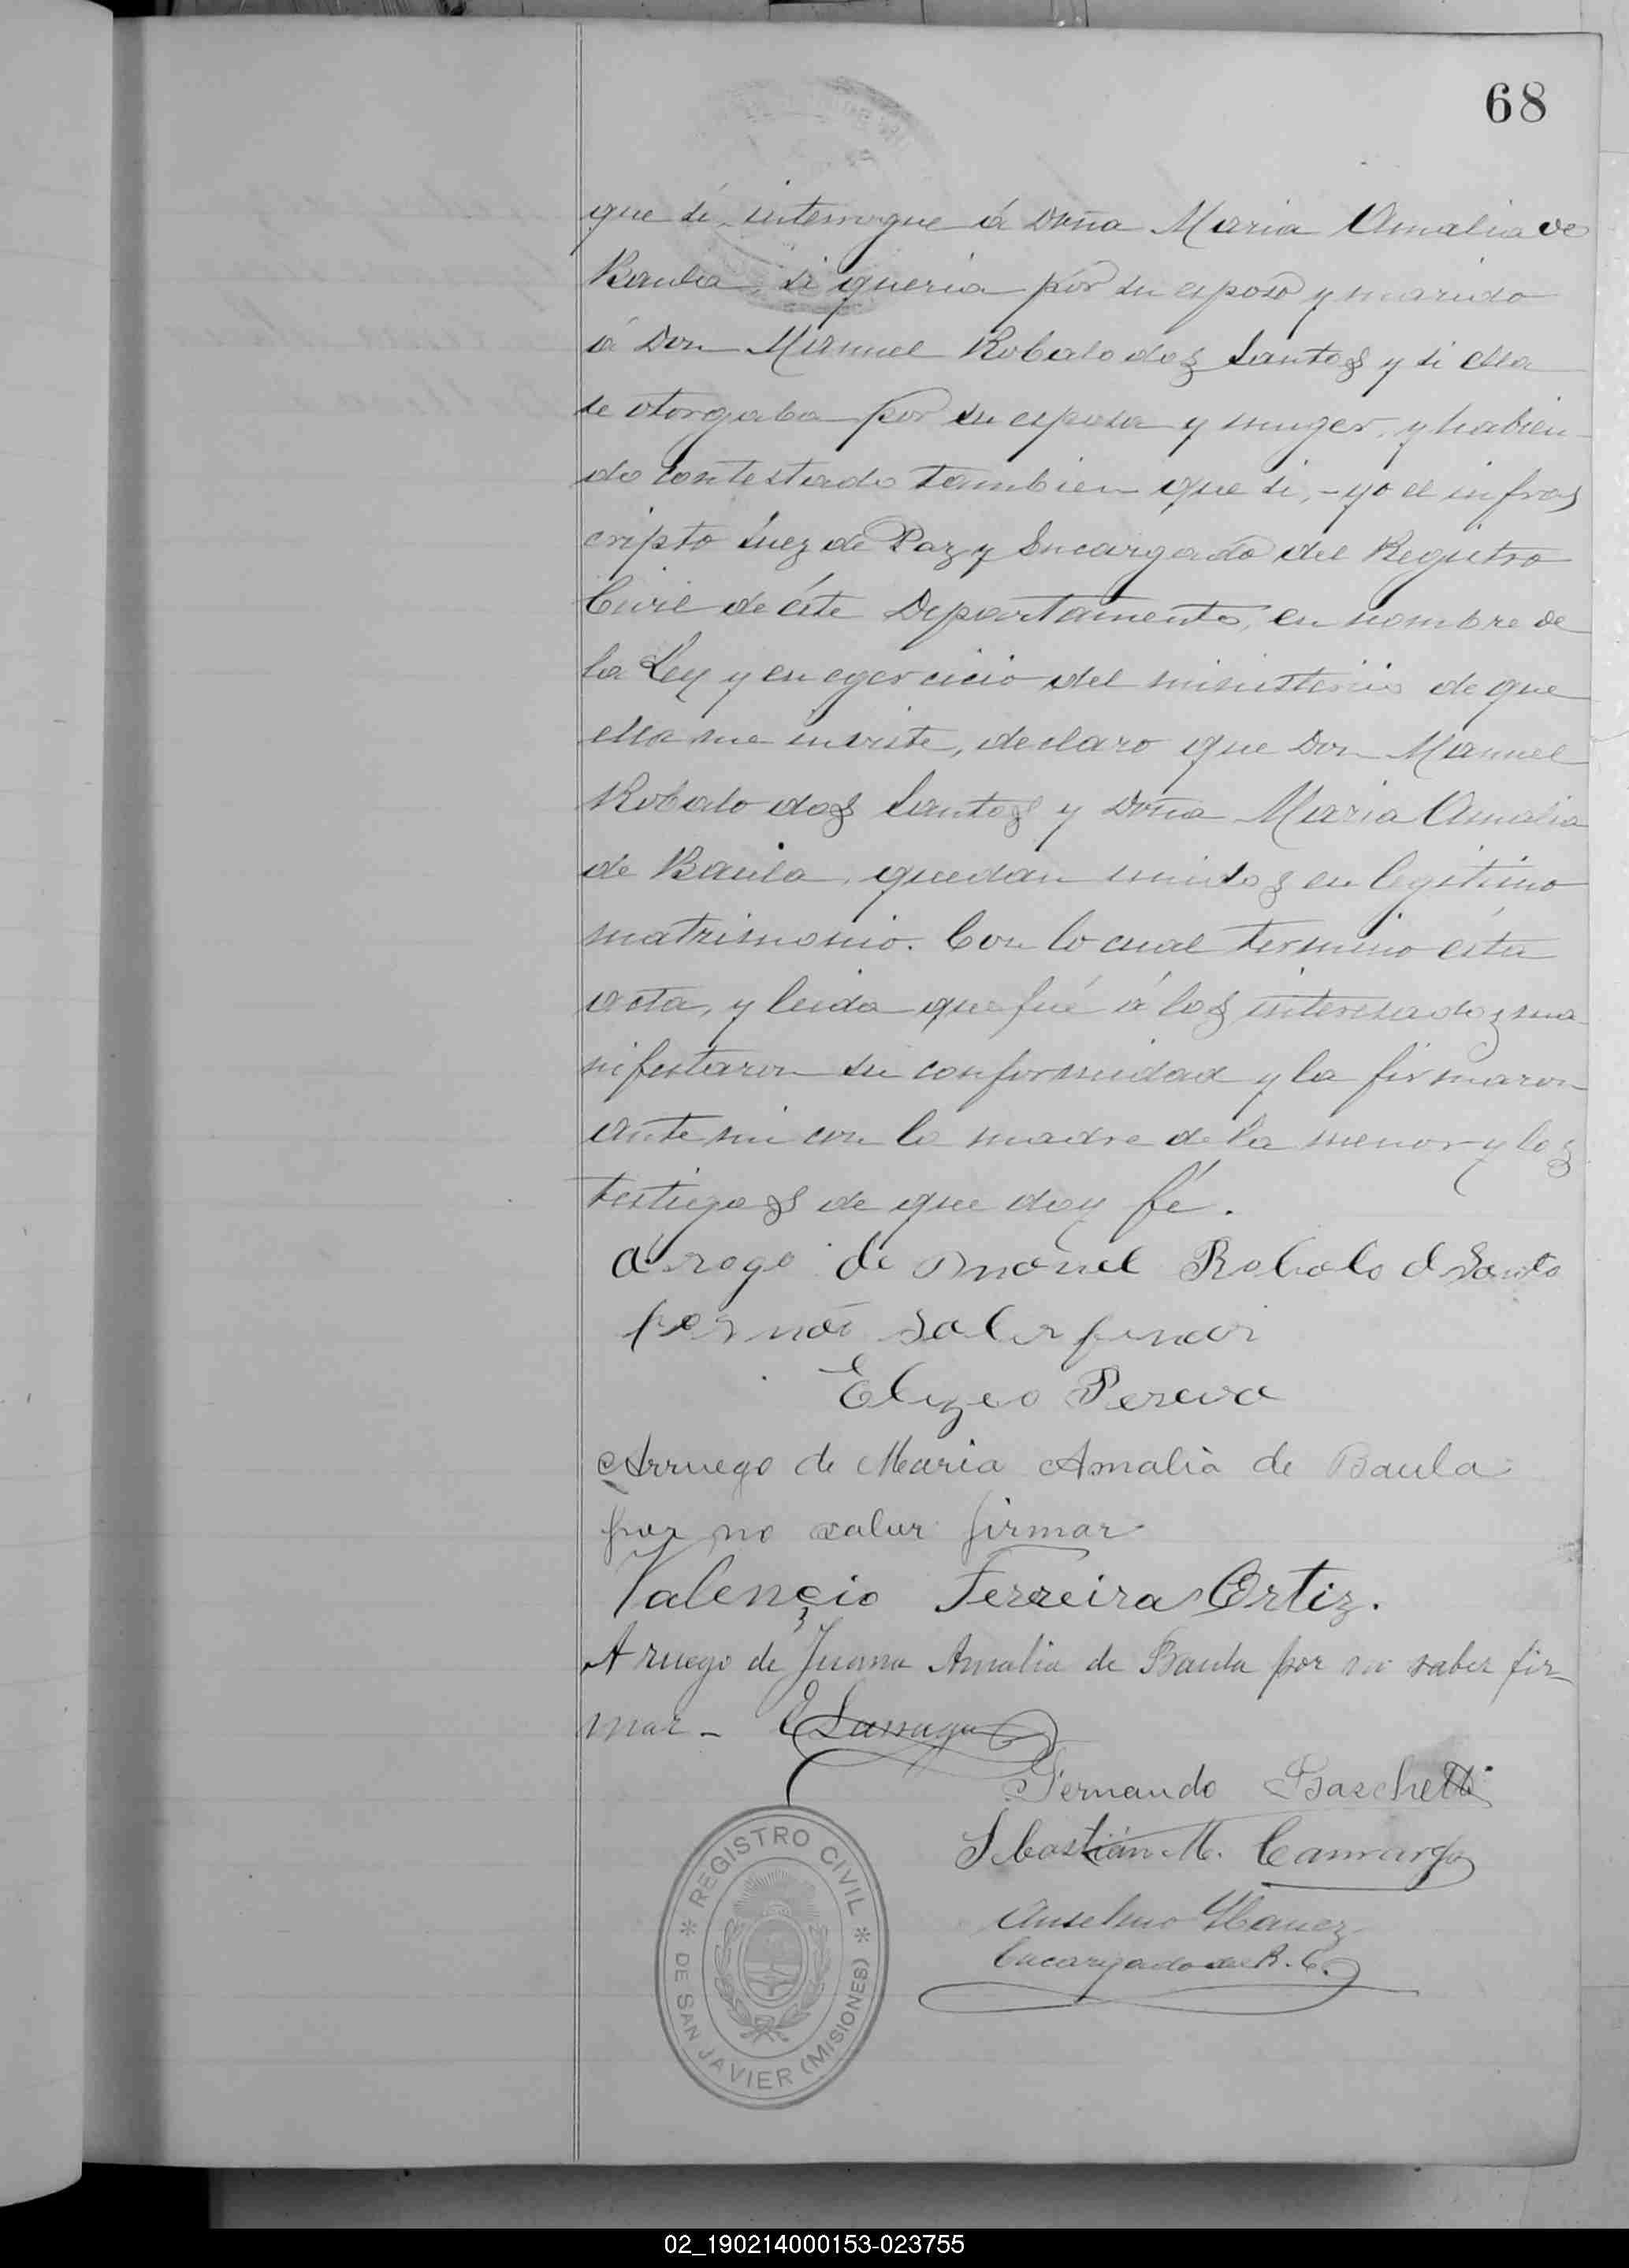 68
que sí, interrogue á Doña Maria Amalia de
Baula, si queria por su esposo y marido
á Don Manuel Robalo dos Santos y si ella
se otorgaba por su esposa y muger, y habien-
do contestado tambien que si, - yo el infras
cripto Juez de Paz y Encargado del Registro
Civil de éste Departamento, en nombre de
la Ley y en egercicio del ministerio de que
ella me inviste, declaro que Don Manuel
Robalo dos Santos y Doña Maria Amalia
de Baula, quedan unidos en legitimo
matrimonio. Con lo cual termino ésta
acta, y leida que fué á los interesados ma-
nifestaron su conformidad y la firmaron
ante mi con la madre de la menor y los
testigos de que doy fé.
A rogo de Manuel Robalo d Santo
por não
Elizeo Pereira
Arruego de Maria Amalia de Baula
por no saber firmar
Valencio Ferreira Ortiz.
A ruego de Juana Amalia de Baula por no saber fir-
mar -
Fernando Baschetti
Sebastián M. Camargo
Anselmo Ybanez
Encargado del R. C.
REGISTRO CIVIL
DE SAN JAVIER (MISIONES)
02_190214000153-023755